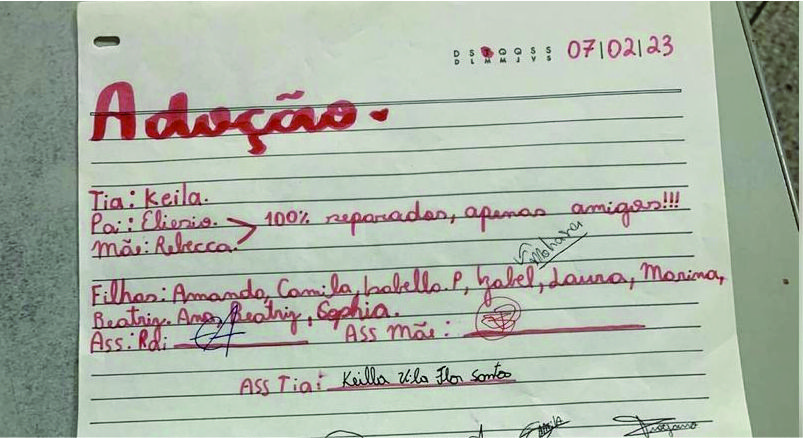 D S T Q Q S S 07|02|23
D L M M J V S
Adoção.
Tia: Keila.
Pai: Eliesio. 100% separados, apenas amigos!!!
Mãe: Rebecca.
Mohana
Filhas: Amanda, Camila, Isabella.P, Izabel, Laura, Marina,
Beatriz. Ana Beatriz, Sophia.
Ass: Pai: Ass Mãe:
ASS Tia: Keilla Vila Flor Santos